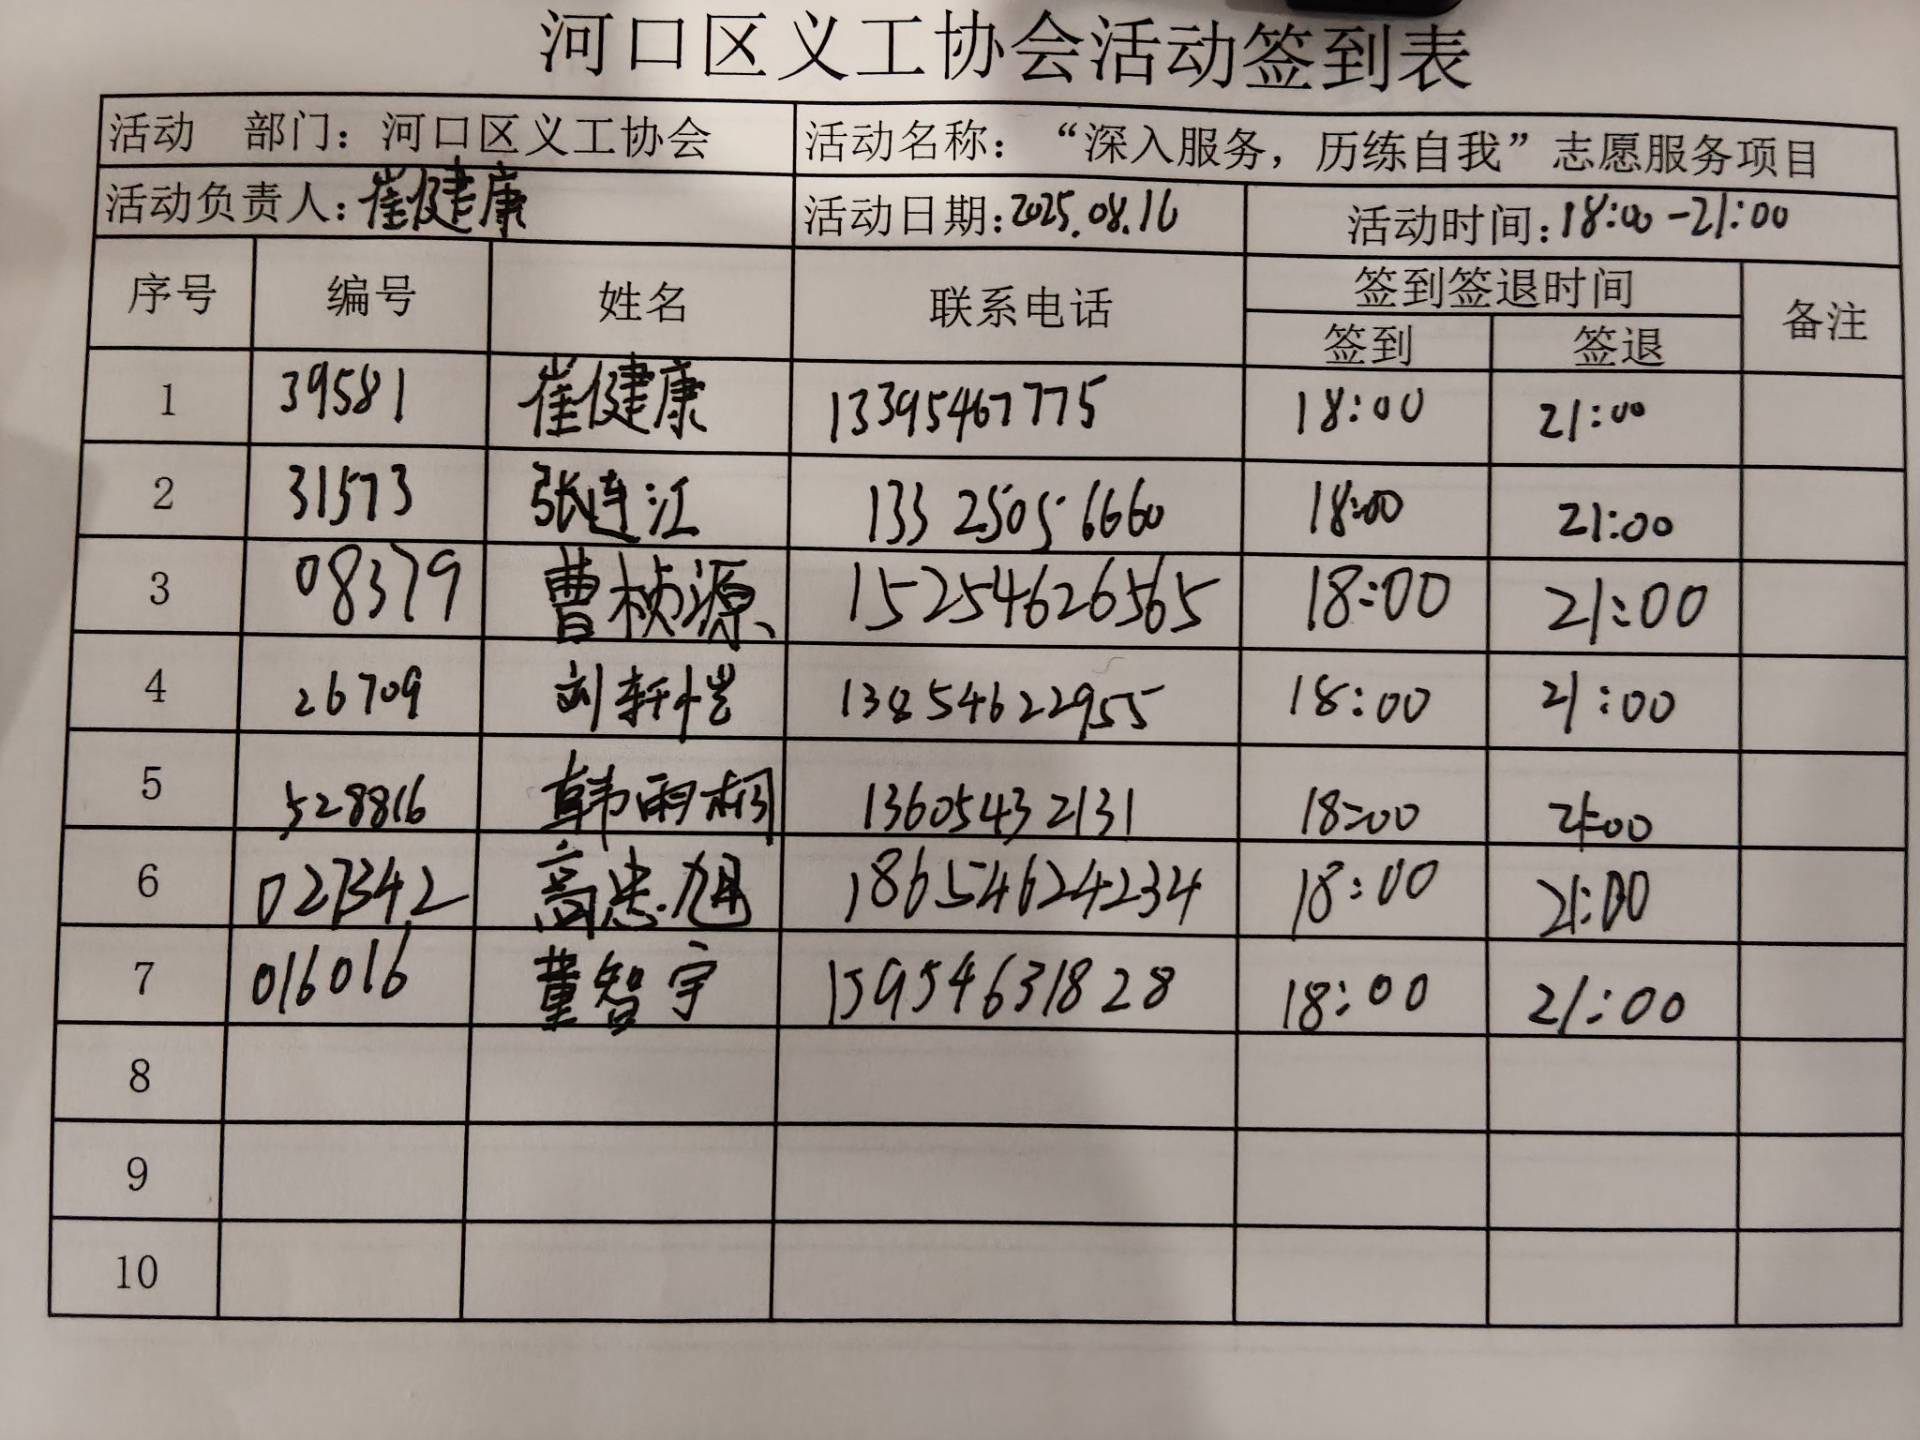 河口区义工协会活动签到表
活动 部门：河口区义工协会 活动名称：“深入服务，历练自我”志愿服务项目
活动负责人：崔健康 活动日期：2025.08.16 活动时间：18:00-21:00
序号 编号 姓名 联系电话 签到签退时间 备注
签到 签退
1 39581 崔健康 13395467775 18:00 21:00
2 31573 张连江 13325056660 18:00 21:00
3 08379 曹桢源 15254626565 18:00 21:00
4 26709 刘轩恺 13854622955 18:00 21:00
5 528816 韩雨桐 13605432131 18:00 21:00
6 027342 高忠旭 18654624234 18:00 21:00
7 016016 董智宇 15954631828 18:00 21:00
8
9
10